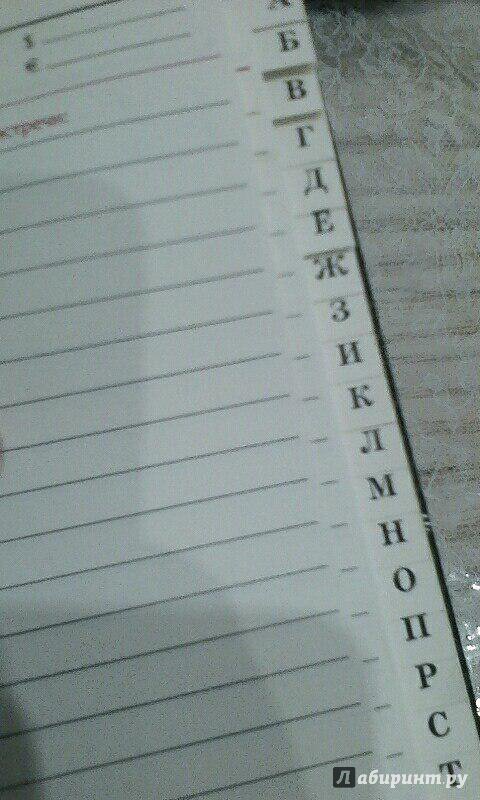 А
Б
$
€
В
встречи:
Г
Д
Е
Ж
З
И
К
Л
М
Н
О
П
Р
С
Т
Лабиринт.ру